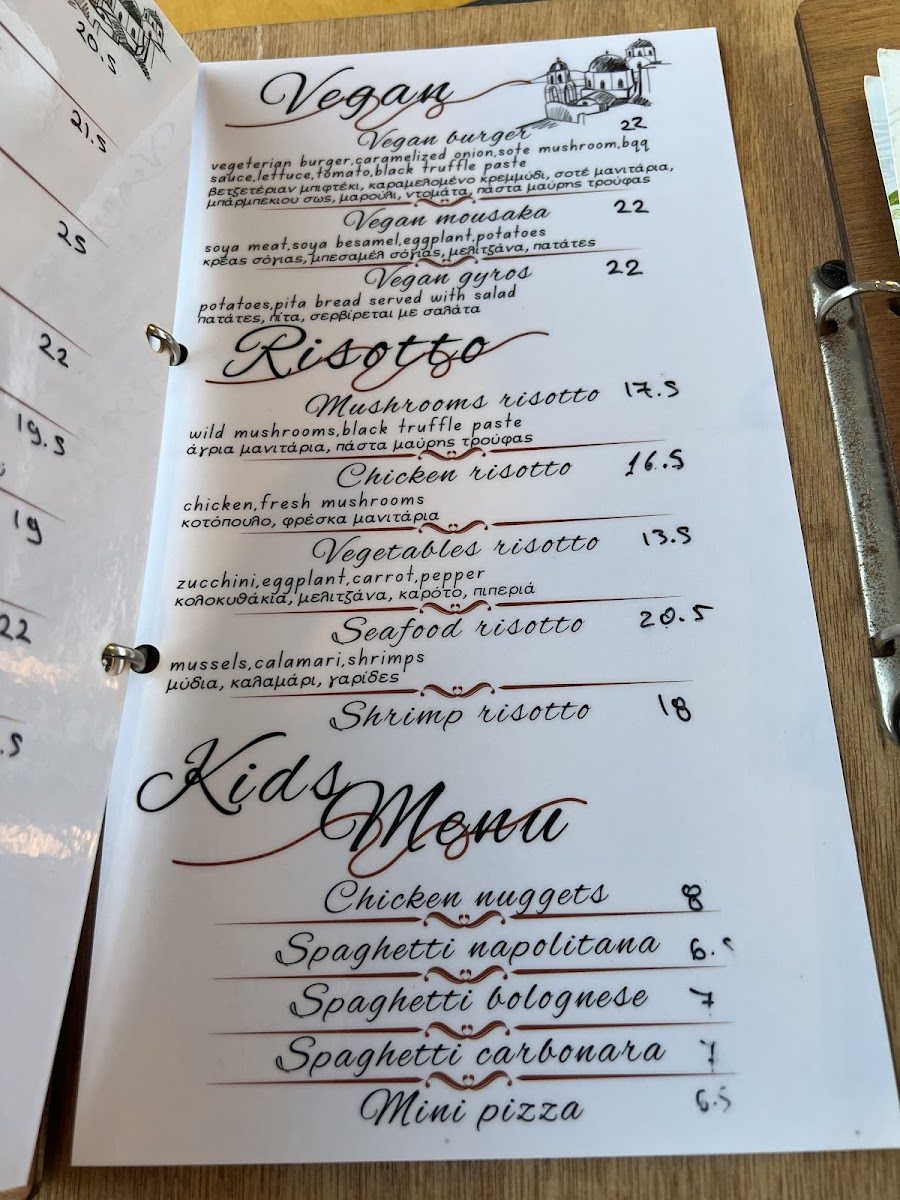 20.5
21.5
25
22
19.5
19
22
.5
Vegan
Vegan burger 22
vegeterian burger,caramelized onion,sote mushroom,bqq
sauce,lettuce,tomato,black truffle paste
βετζετέριαν μπιφτέκι, καραμελομένο κρεμμύδι, σοτέ μανιτάρια,
μπάρμπεκιου σως, μαρούλι, ντομάτα, πάστα μαύρης τρούφας
Vegan mousaka 22
soya meat,soya besamel,eggplant,potatoes
κρέας σόγιας, μπεσαμέλ σόγιας, μελιτζάνα, πατάτες
Vegan gyros 22
potatoes,pita bread served with salad
πατάτες, πίτα, σερβίρεται με σαλάτα
Risotto
Mushrooms risotto 17.5
wild mushrooms,black truffle paste
άγρια μανιτάρια, πάστα μαύρης τρούφας
Chicken risotto 16.5
chicken,fresh mushrooms
κοτόπουλο, φρέσκα μανιτάρια
Vegetables risotto 13.5
zucchini,eggplant,carrot,pepper
κολοκυθάκια, μελιτζάνα, καρότο, πιπεριά
Seafood risotto 20.5
mussels,calamari,shrimps
μύδια, καλαμάρι, γαρίδες
Shrimp risotto 18
Kids
Menu
Chicken nuggets 8
Spaghetti napolitana 6.5
Spaghetti bolognese 7
Spaghetti carbonara 7
Mini pizza 6.5